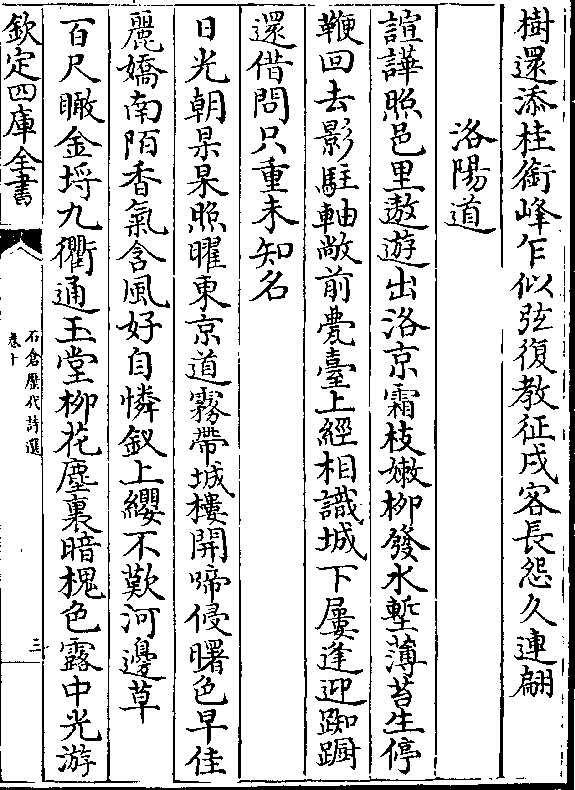 樹還添桂銜峰乍似弦復教征戍客長怨久連翩
洛陽道
諠譁照邑里遨遊出洛京霜枝嫩柳發水塹薄苔生停
鞭回去影駐軸敞前甍臺上經相識城下屢逢迎踟蹰
還借問只重未知名
日光朝杲杲照曜東京道霧帶城樓開啼侵曙色早佳
麗嬌南陌香氣含風好自憐釵上纓不歎河邊草
百尺瞰金埒九衢通玉堂柳花塵裏暗槐色露中光游
欽定四庫全書
石倉歷代詩選
卷十
三